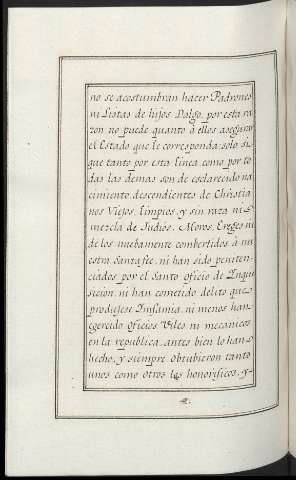 no se acostumbran hacer Padrones
ni Listas de hijos Dalgo, por esta ra
zon no puede quanto â ellos aseguro
el Estado que le corresponda solo si,
que tanto por esta linea como por to
das las demas son de esclarecido na
cimiento, descendientes de Christia
nos Viejos, limpios, y sin raza ni
mezcla de Judios, Moros, Ereges ni
de los nuebamente combertidos â nu
estra Santa fee, ni han sido peniten-
ciados por el Santo oficio de Ynqui
sicion, ni han cometido delito que
produjese Ynfamia, ni menos han
egercido oficios Viles ni mecanicos
en la republica, antes bien lo han
hecho, y siempre obtubieron tanto
unos como otros los honorificos, y-